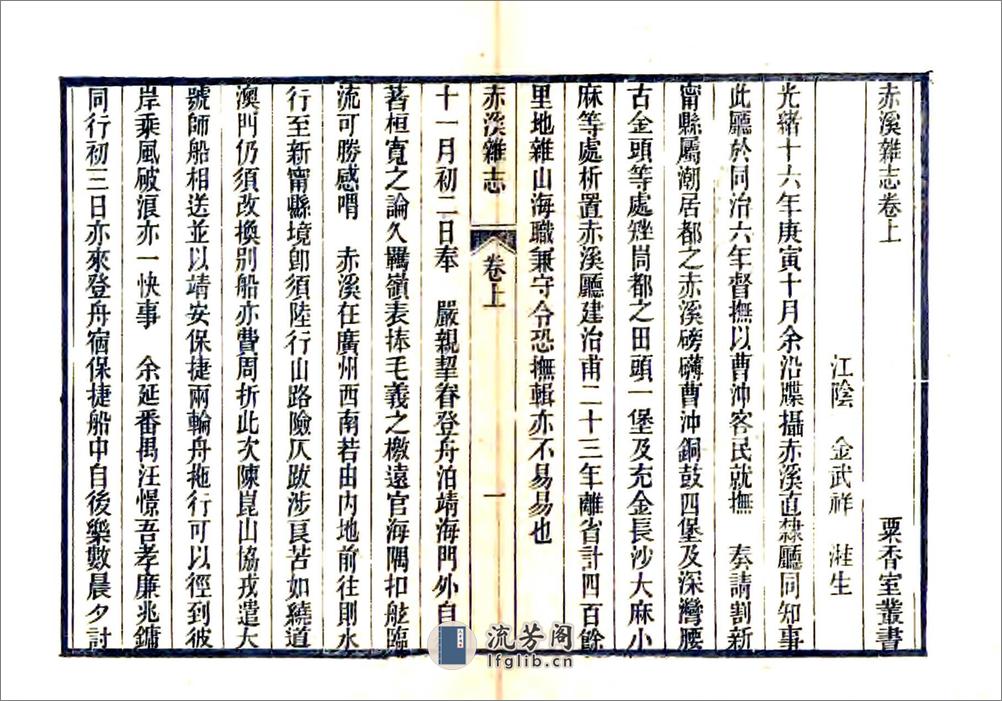 赤溪雜志卷上
粟香室叢書
江陰 金武祥 溎生
光緒十六年庚寅十月余沿牒攝赤溪直隸廳同知事
此廳於同治六年督撫以曹沖客民就撫 奏請割新
甯縣屬潮居都之赤溪磅礴曹沖銅鼓四堡及深灣腰
古金頭等處矬峝都之田頭一堡及充金長沙大麻小
麻等處析置赤溪廳建治甫二十三年離省計四百餘
里地雜山海職兼守令恐撫輯亦不易易也
赤溪雜志 卷上 一
十一月初二日奉 嚴親挈眷登舟泊靖海門外自
著桓寬之論久羈嶺表捧毛義之檄遠官海隅扣舷臨
流可勝感喟 赤溪在廣州西南若由內地前往則水
行至新甯縣境卽須陸行山路險仄跋涉艮苦如繞道
澳門仍須改換別船亦費周折此次陳崑山協戎遣大
號師船相送並以靖安保捷兩輪舟拖行可以徑到彼
岸乘風破浪亦一快事 余延番禺汪憬吾孝廉兆鏞
同行初三日亦來登舟宿保捷船中自後樂數晨夕討
流芳阁
lfglib.cn